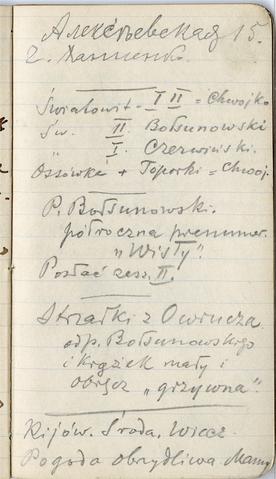 Алексѣевская 15.
г. Ханченко.
Światowit - I II = Chwojko
Św. II. Bołsunowski
" I. Czerwiński.
Ossówka + Toporki = Chwoj.
P. Bołsunowski.
półroczna prenumer.
"Wisły".
Posłać zesz. II.
Strzałki z Owrucza
odp. Bołsunowskiego
i krążek mały i
obręcz "grzywna".
Kijów. Środa, Wiecz.
Pogoda obrzydliwa. Mamy